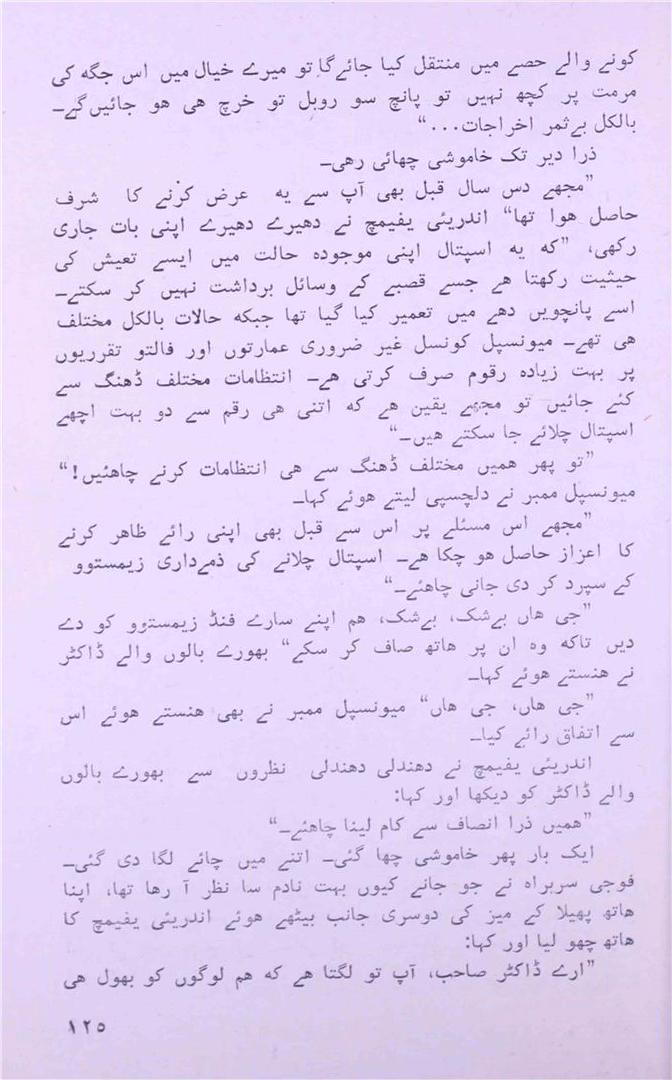 کونے والے حصے میں منتقل کیا جائےگا تو میرے خیال میں اس جگہ کی
مرمت پر کچھ نہیں تو پانچ سو روبل تو خرچ ھی ھو جائیںگے۔
بالکل بےثمر اخراجات...“
ذرا دیر تک خاموشی چھائی رھی۔
”مجھے دس سال قبل بھی آپ سے یہ عرض کرنے کا شرف
حاصل ھوا تھا“ اندریئی یفیمچ نے دھیرے دھیرے اپنی بات جاری
رکھی، ”کہ یہ اسپتال اپنی موجودہ حالت میں ایسے تعیش کی
حیثیت رکھتا ھے جسے قصبے کے وسائل برداشت نہیں کر سکتے۔
اسے پانچویں دھے میں تعمیر کیا گیا تھا جبکہ حالات بالکل مختلف
ھی تھے۔ میونسپل کونسل غیر ضروری عمارتوں اور فالتو تقرریوں
پر بہت زیادہ رقوم صرف کرتی ھے۔ انتظامات مختلف ڈھنگ سے
کئے جائیں تو مجھے یقین ھے کہ اتنی ھی رقم سے دو بہت اچھے
اسپتال چلائے جا سکتے ھیں۔“
”تو پھر ھمیں مختلف ڈھنگ سے ھی انتظامات کرنے چاھئیں!“
میونسپل ممبر نے دلچسپی لیتے ھوئے کہا۔
”مجھے اس مسئلے پر اس سے قبل بھی اپنی رائے ظاھر کرنے
کا اعزاز حاصل ھو چکا ھے۔ اسپتال چلانے کی ذمےداری زیمستوو
کے سپرد کر دی جانی چاھئے۔“
”جی ھاں بےشک، بےشک، ھم اپنے سارے فنڈ زیمستوو کو دے
دیں تاکہ وہ ان پر ھاتھ صاف کر سکے“ بھورے بالوں والے ڈاکٹر
نے ھنستے ھوئے کہا۔
”جی ھاں، جی ھاں“ میونسپل ممبر نے بھی ھنستے ھوئے اس
سے اتفاق رائے کیا۔
اندریئی یفیمچ نے دھندلی دھندلی نظروں سے بھورے بالوں
والے ڈاکٹر کو دیکھا اور کہا:
”ھمیں ذرا انصاف سے کام لینا چاھئے۔“
ایک بار پھر خاموشی چھا گئی۔ اتنے میں چائے لگا دی گئی۔
فوجی سربراہ نے جو جانے کیوں بہت نادم سا نظر آ رھا تھا، اپنا
ھاتھ پھیلا کے میز کی دوسری جانب بیٹھے ھوئے اندریئی یفیمچ کا
ھاتھ چھو لیا اور کہا:
”ارے ڈاکٹر صاحب، آپ تو لگتا ھے کہ ھم لوگوں کو بھول ھی
۱۲۵